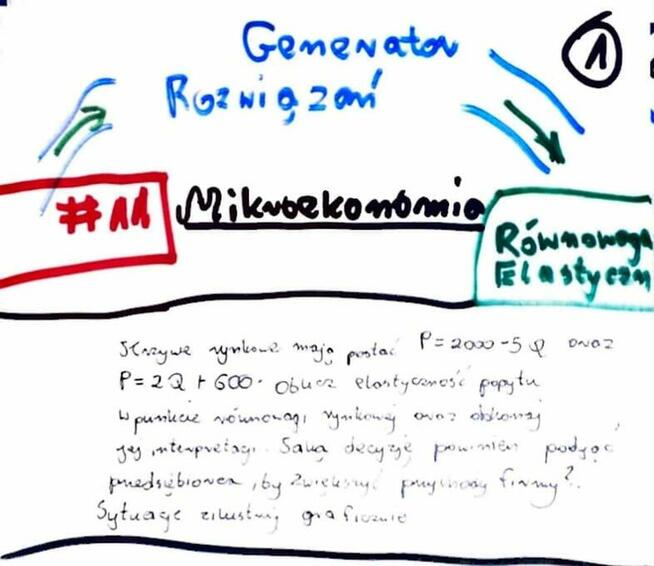 Generator
Rozwiązań
1
#11
Mikroekonomia
Równowaga
Elastyczn
Krzywe rynkowe mają postać P=2000-5Q oraz
P=2Q+600. Oblicz elastyczność popytu
w punkcie równowagi rynkowej oraz dokonaj
jej interpretacji. Jaką decyzję powinien podjąć
przedsiębiorca, by zwiększyć przychody firmy?
Sytuację zilustruj graficznie